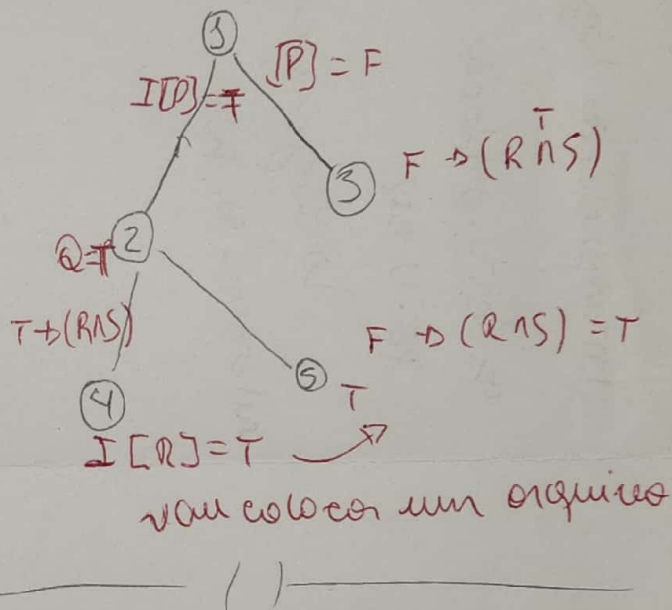 1
I[P]=T
[P] = F
T
3
F → (R ∧ S)
2
Q=T
T→(R∧S)
F → (R ∧ S) = T
5
T
4
I[R]=T
vou colocar um arquivo
( )